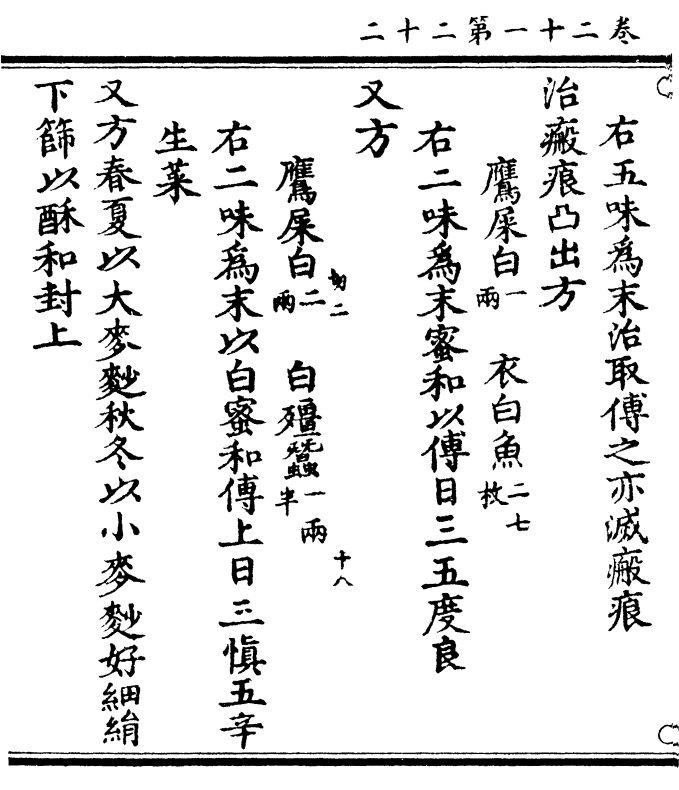 卷二十一第二十二
右五味爲末治取傅之亦滅瘢痕
治瘢痕凸出方
鷹屎白一兩 衣白魚二七枚
右二味爲末蜜和以傅日三五度良
又方
二 十八
鷹屎白二兩 白殭蠶一兩半
右二味爲末以白蜜和傅上日三慎五辛
生菜
又方春夏以大麥麨秋冬以小麥麨好細絹
下篩以酥和封上